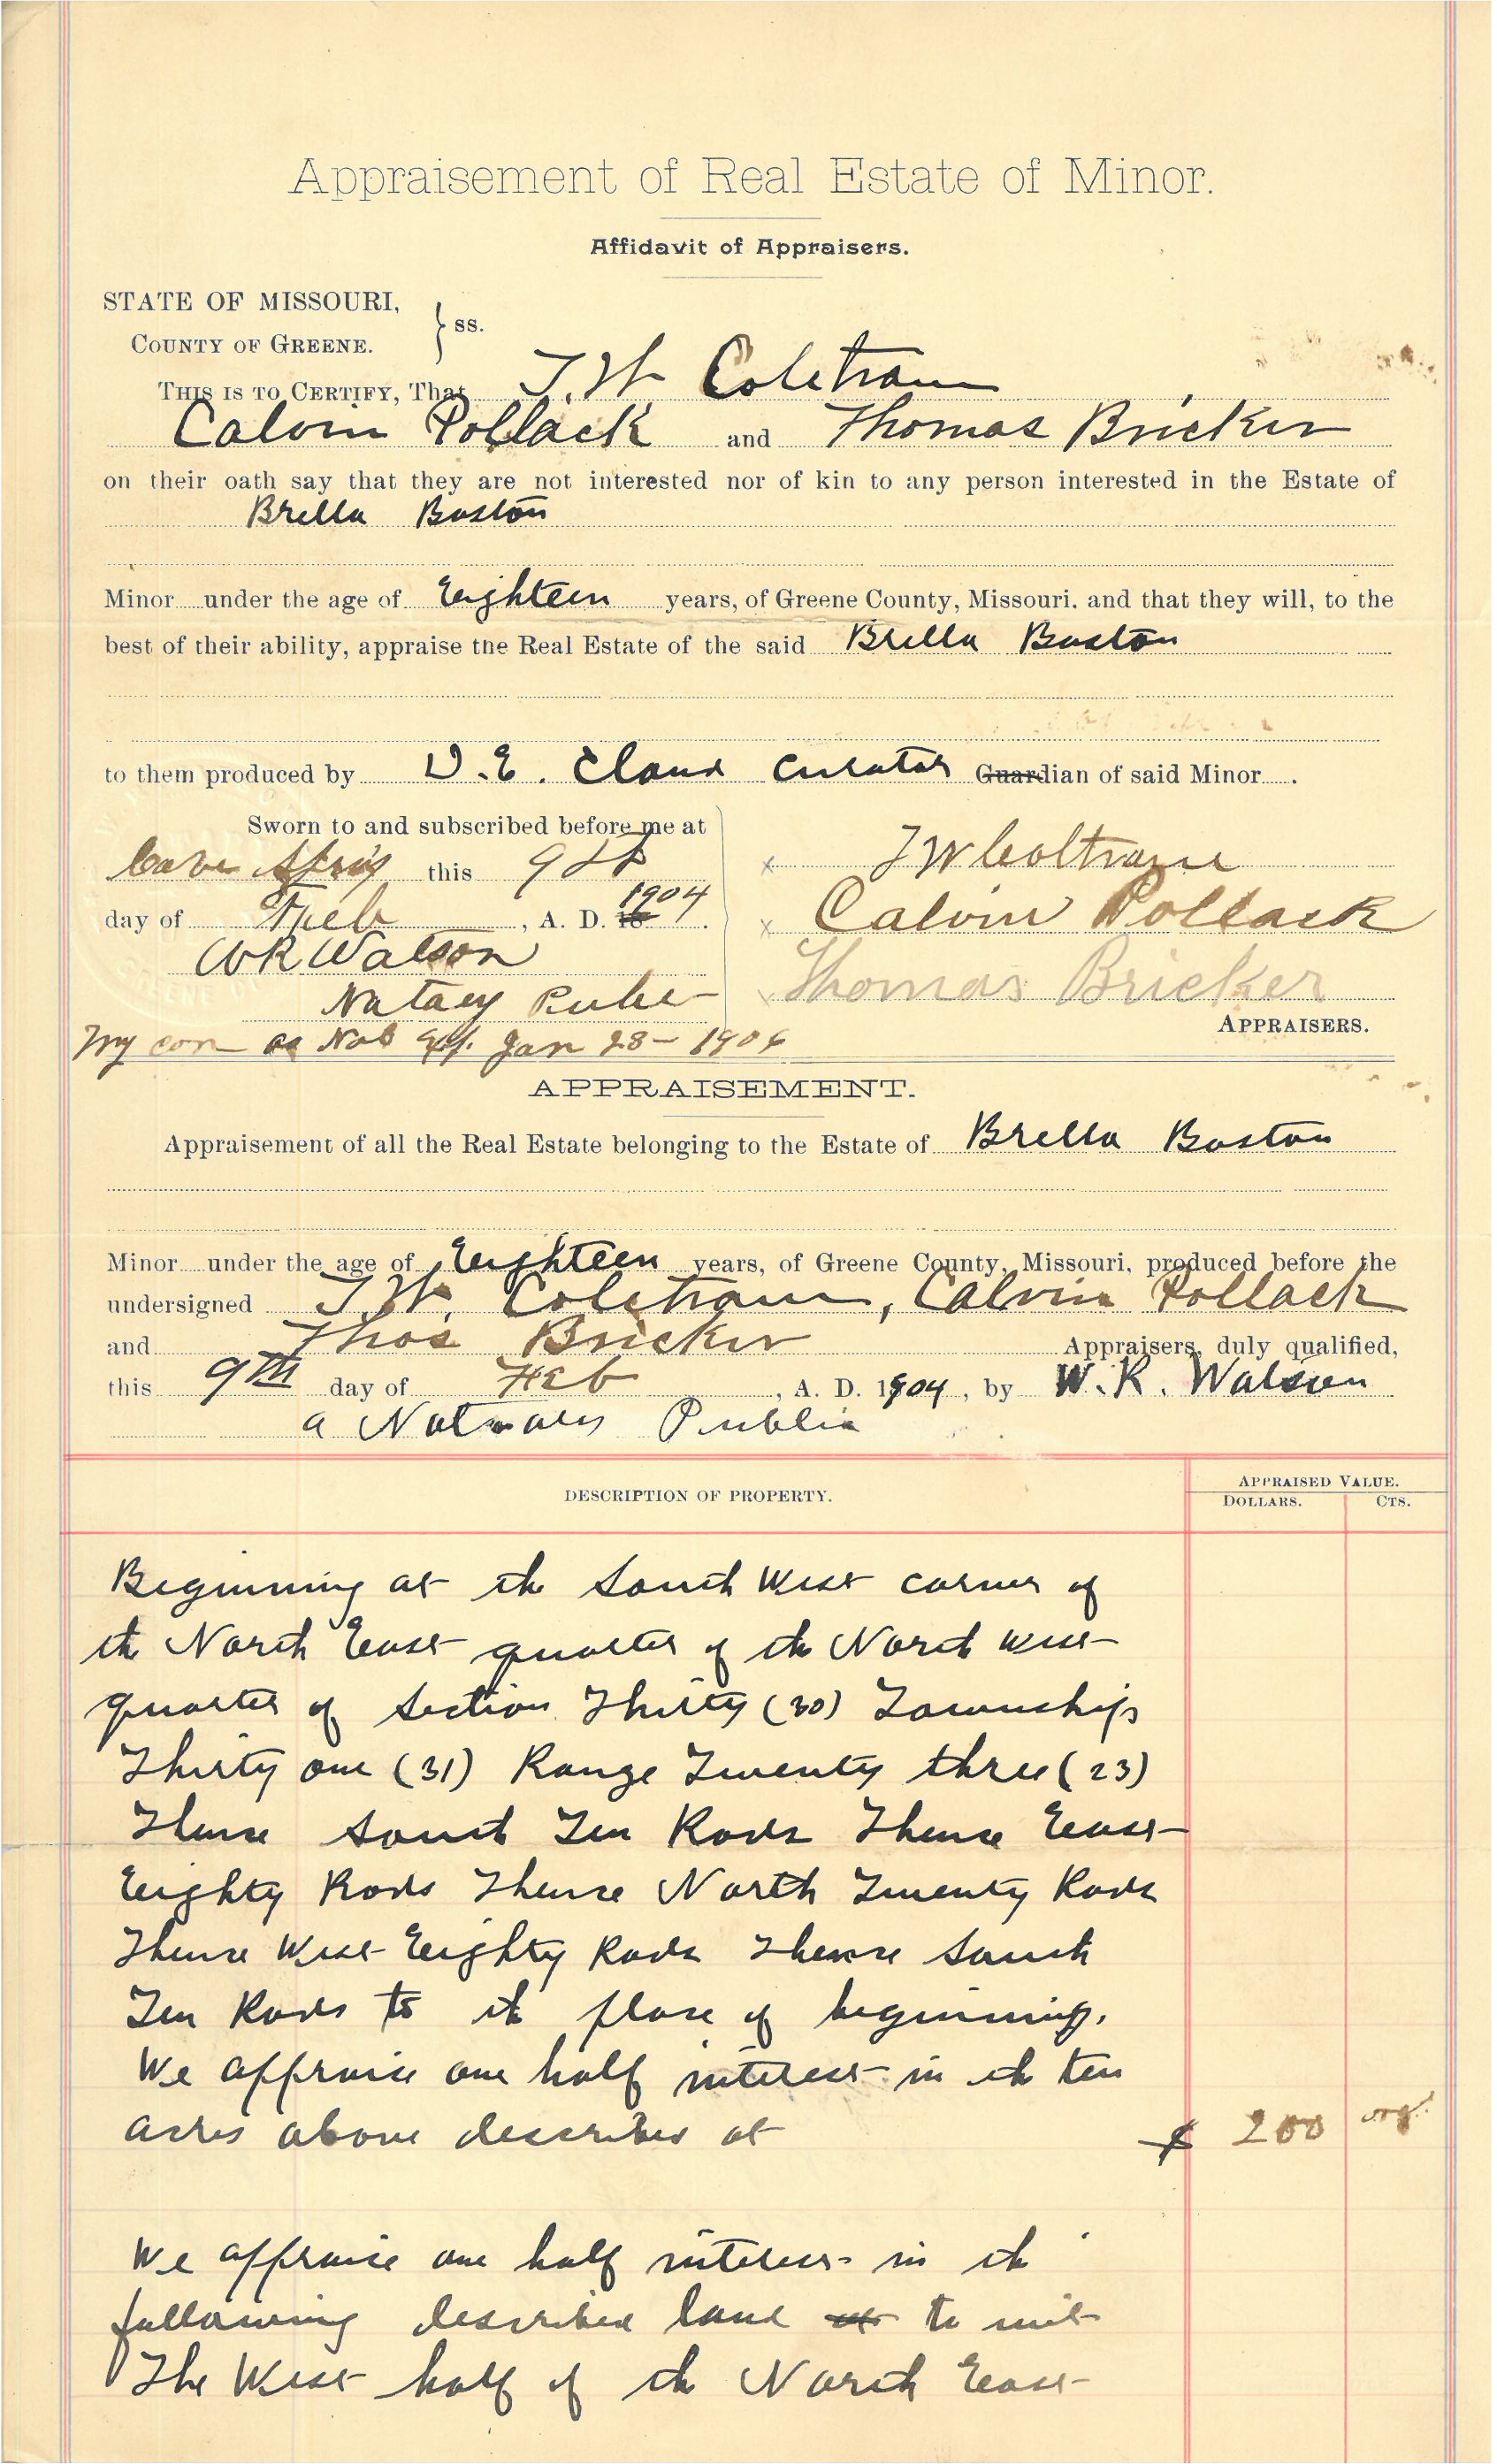 Appraisement of Real Estate of Minor.
Affidavit of Appraisers.
STATE OF MISSOURI,
COUNTY OF GREENE. } ss.
THIS IS TO CERTIFY, That J. W. Coletrane,
Calvin Pollack and Thomas Bricker
on their oath say that they are not interested nor of kin to any person interested in the Estate of
Brella Boston
Minor under the age of Eighteen years, of Greene County, Missouri, and that they will, to the
best of their ability, appraise the Real Estate of the said Brella Boston
to them produced by D. E. Claud Curator Guardian of said Minor.
Sworn to and subscribed before me at
Cave Spring this 9th
day of Feb, A. D. 18 1904.
WR Watson
Notary Public
My com as Not Exp. Jan 28 - 1906
J W Coltrane
Calvin Pollack
Thomas Bricker
APPRAISERS.
APPRAISEMENT.
Appraisement of all the Real Estate belonging to the Estate of Brella Boston
Minor under the age of Eighteen years, of Greene County, Missouri, produced before the
undersigned J. W. Coletrane, Calvin Pollack
and Thos Bricker Appraisers, duly qualified,
this 9th day of Feb, A. D. 1904, by W. R. Watson
a Notary Public
DESCRIPTION OF PROPERTY.
APPRAISED VALUE.
DOLLARS. CTS.
Beginning at the South West corner of
the North East quarter of the North west
quarter of Section Thirty (30) Township
Thirty one (31) Range Twenty three (23)
Thence South Ten Rods Thence East
Eighty Rods Thence North Twenty Rods
Thence West Eighty Rods Thence South
Ten Rods to the place of beginning.
We appraise one half interest in the ten
acres above described at $ 200
We appraise one half interest in the
following described land to wit
The West half of the North East